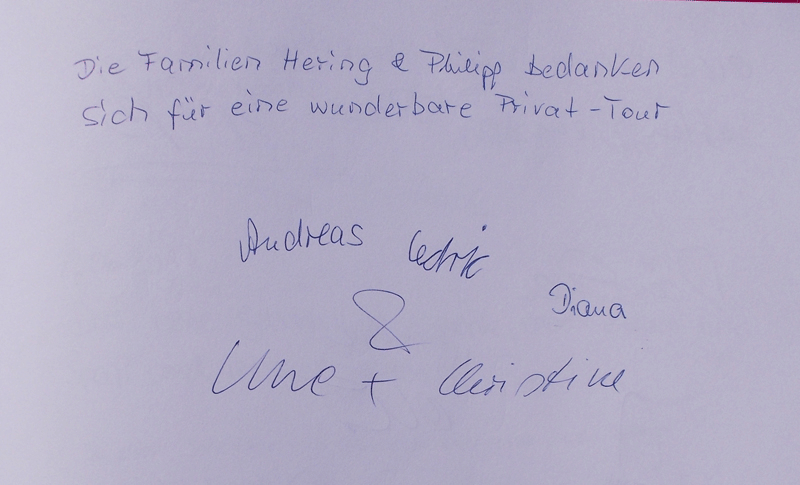 Die Familien Hering & Philipp bedanken
sich für eine wunderbare Privat-Tour
Andreas Cedrik
Diana
&
Uwe + Christine